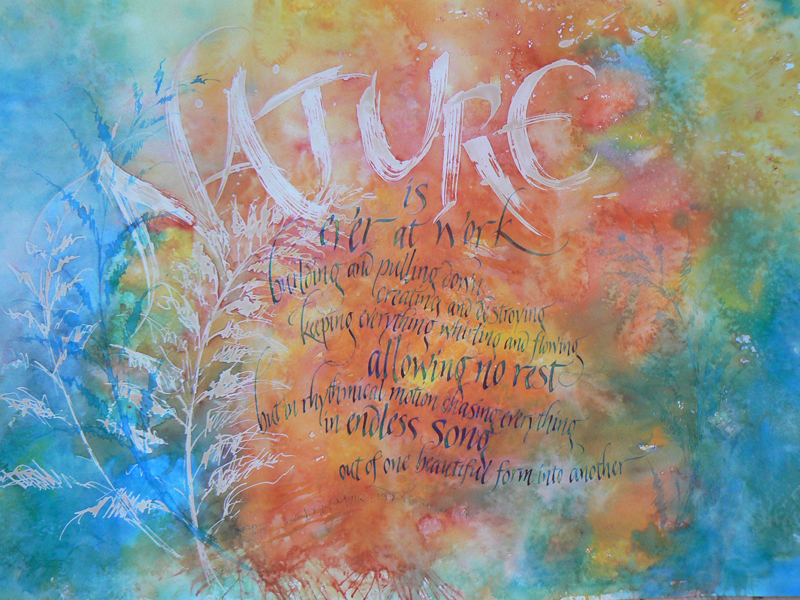 NATURE
is
ever at work
building and pulling down
creating and destroying
keeping everything whirling and flowing
allowing no rest
but in rhythmical motion chasing everything
in endless song
out of one beautiful form into another